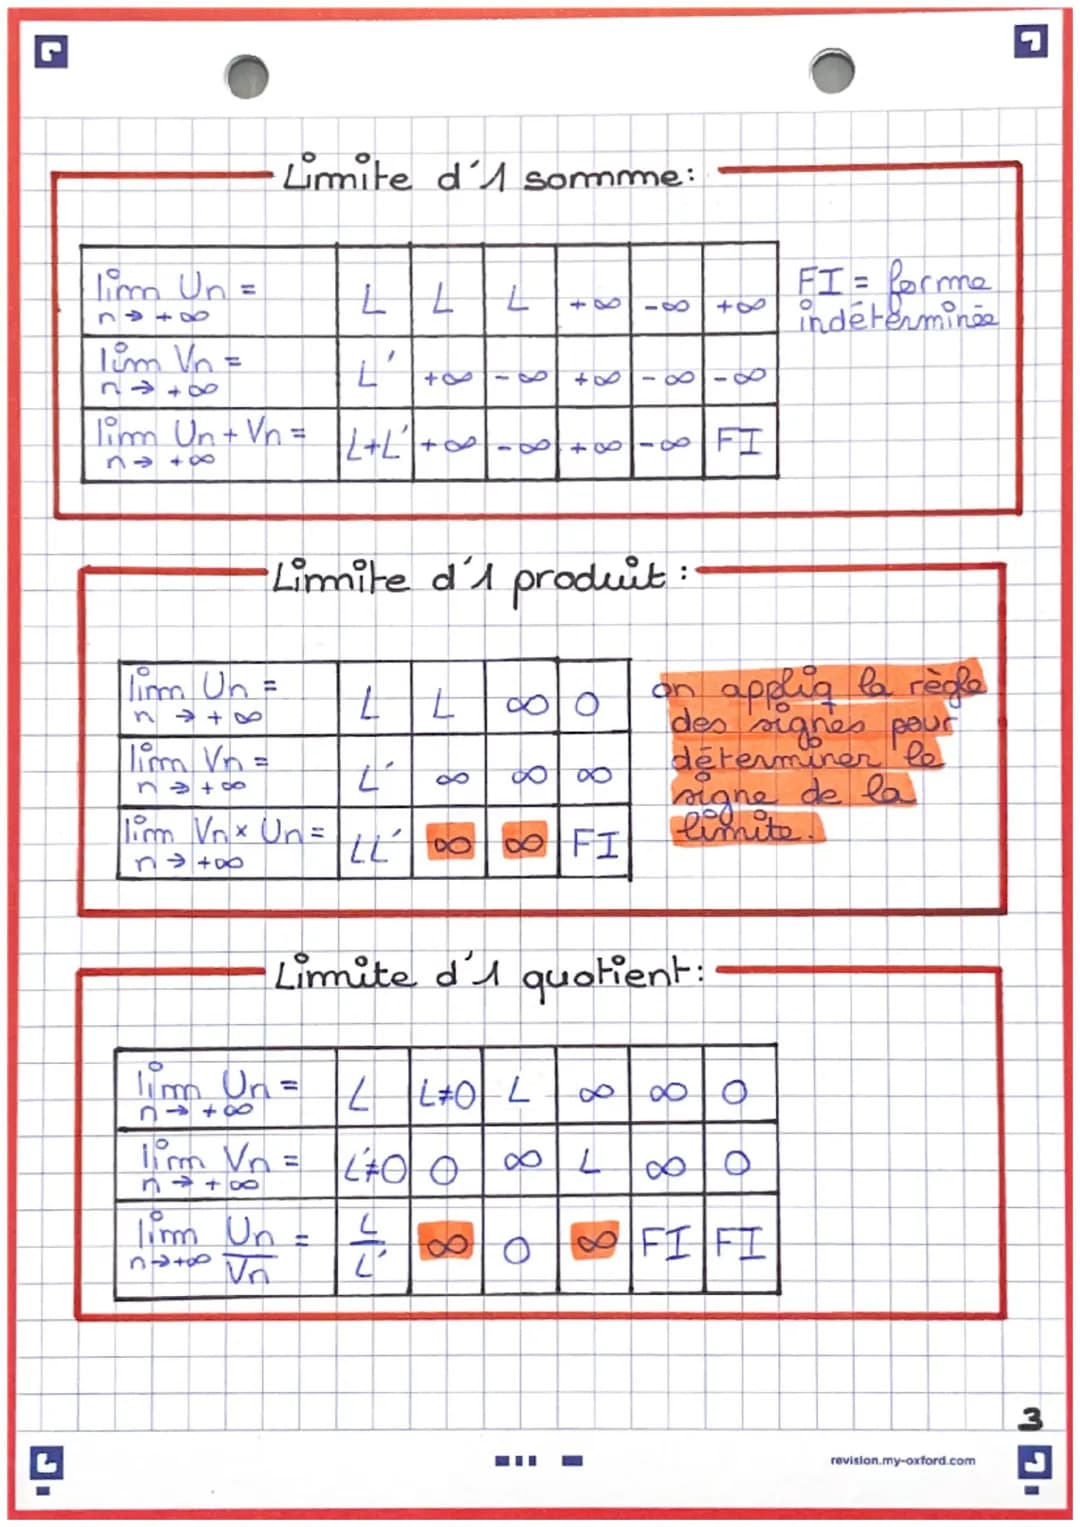 Limite d'1 somme:
lim Un = L L L +∞ -∞ +∞
n → +∞
lim Vn = L' +∞ -∞ +∞ -∞ -∞
n → +∞
lim Un + Vn = L+L' +∞ -∞ +∞ -∞ FI
n → +∞
FI = forme
indéterminée
Limite d'1 produit :
lim Un = L L ∞ 0
n → +∞
lim Vn = L' ∞ ∞ ∞
n → +∞
lim Vn × Un = LL' ∞ ∞ FI
n → +∞
on appliq la règle
des signes pour
déterminer le
signe de la
limite.
Limite d'1 quotient:
lim Un = L L≠0 L ∞ ∞ 0
n → +∞
lim Vn = L'≠0 0 ∞ L ∞ 0
n → +∞
lim Un/Vn = L/L' ∞ 0 ∞ FI FI
n → +∞
3
revision.my-oxford.com